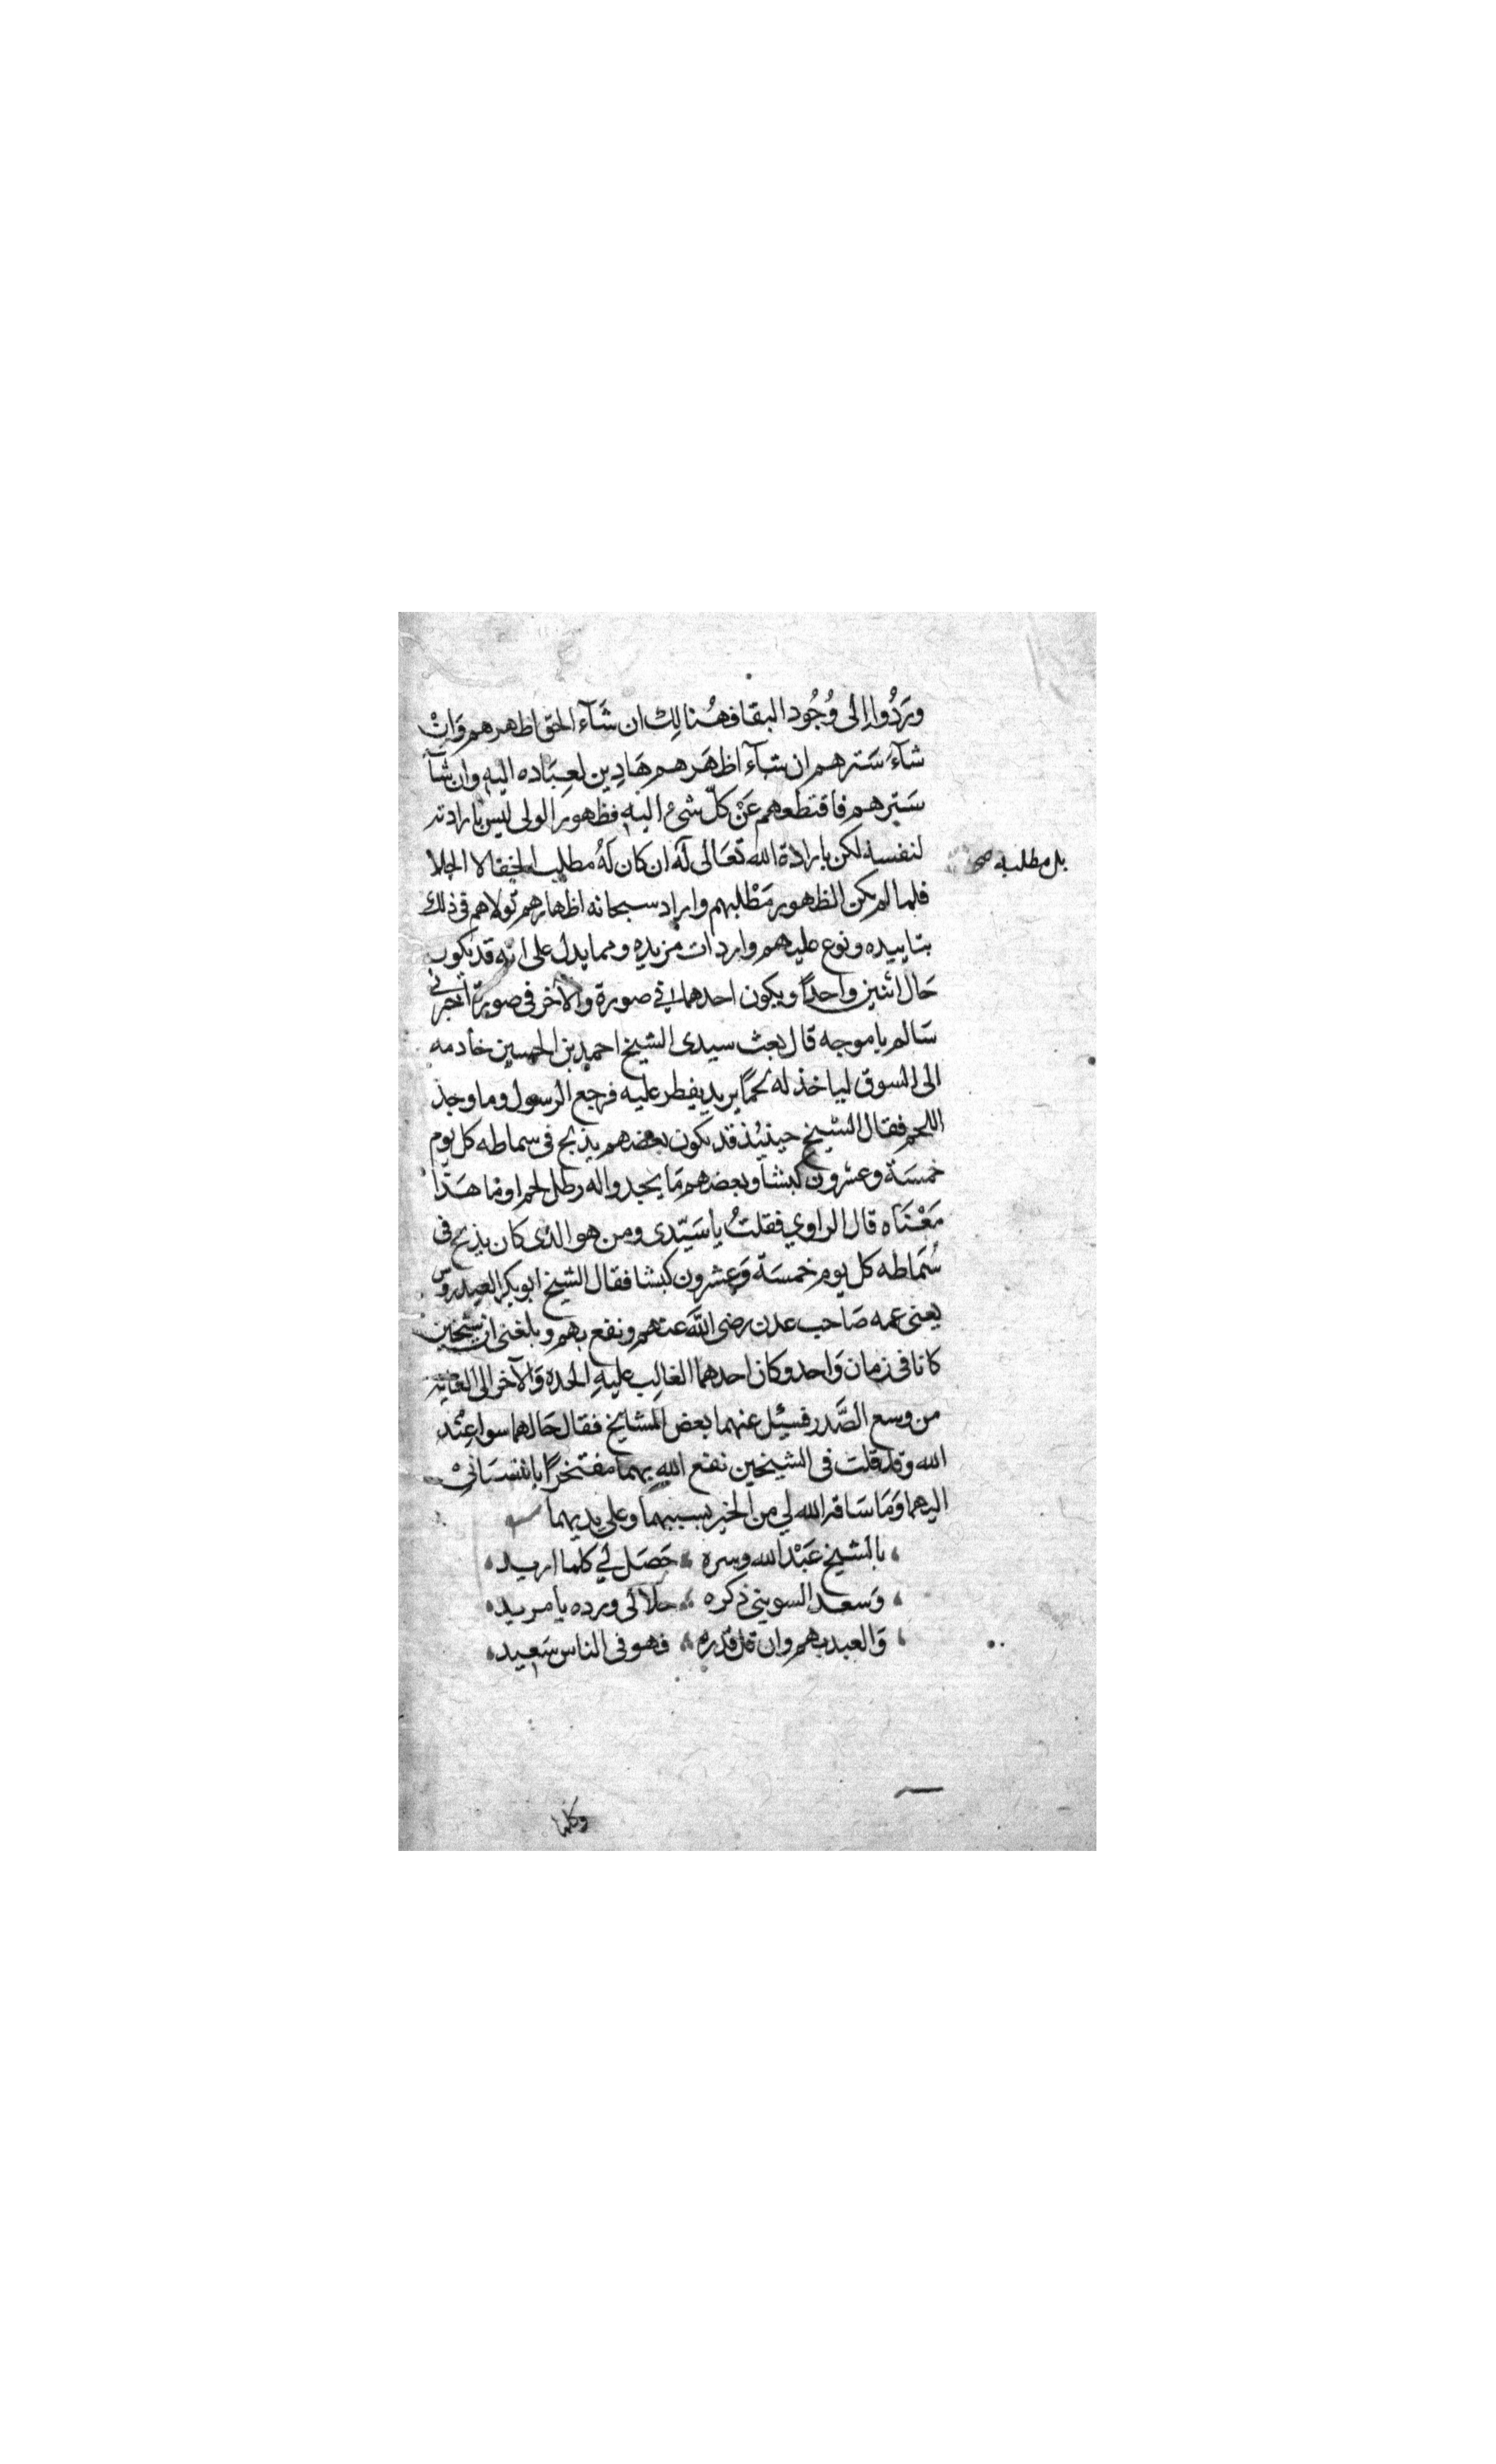 وَرَدُّوا إلى وُجُود البقا فهُنالِك ان شَآء الحق اظهرهم وَانْ
شآءَ سَترهم ان شآء اظهَرهم هَادِين لعِبَاده اليهِ وان شآء
سَترهم فاقتطعهم عَنْ كلّ شئ اليهِ فظهور الولى ليس بارادته
لنفسه لكن بارادة الله تعَالى لَه ان كان لَهُ مطلب الخفا لا الجلا
بل مطلبه صح
فلما لم يكن الظهور مَطْلبهم واراد سبحانه اظهارهم تولاهم فى ذلك
بتاييده ونوع عليهم واردات مزيده ومما يدل على انه قد يكون
حَال اثنين واحداً ويكون احدهما في صورة والآخر فى صورة اخبرنى
سَالم باموجه قال بعث سيدى الشيخ احمد بن الحسين خادمه
الى السوق لياخذ له لحمًا يريد يفطر عليه فرجع الرسول وما وجد
اللحم فقال الشيخ حينئذ قد يكون بعضهم يذبح فى سماطه كل يوم
خمسَة وعشرون كبشا وبعضهم مَا يجدوا له رطل لحم او مَا هَذا
مَعْنَاه قال الراوي فقلتُ يا سَيّدى ومن هو الذى كان يذبح فى
سُمَاطه كل يوم خمسَة وَعشرون كبشا فقال الشيخ ابو بكر العيدروس
يعنى عمه صَاحب عدن رضى اللَّه عنهم ونفع بهم وبلغنى ان شيخين
كانا فى زمان وَاحد وكان احدهما الغالِب عليهِ الحده وَالآخر الى الغايه
من وسع الصَّدر فسئِل عنهما بعض المشايخ فقال حَالهما سوا عِنْد
الله وقد قلت فى الشيخين نفع اللهِ بهما مفتخرًا بانتسَابىْ
اليهما وَمَا سَاقه الله لي من الخير بسببهما وعلى يديهما
بالشيخ عَبْد الله وسره حَصَل لي كلما اريد
وَسعد السوينى ذكره حلا لى ورده يا مريد
وَالعبد بهم وان قل قدره فهو فى الناس سَعِيد
وكلما